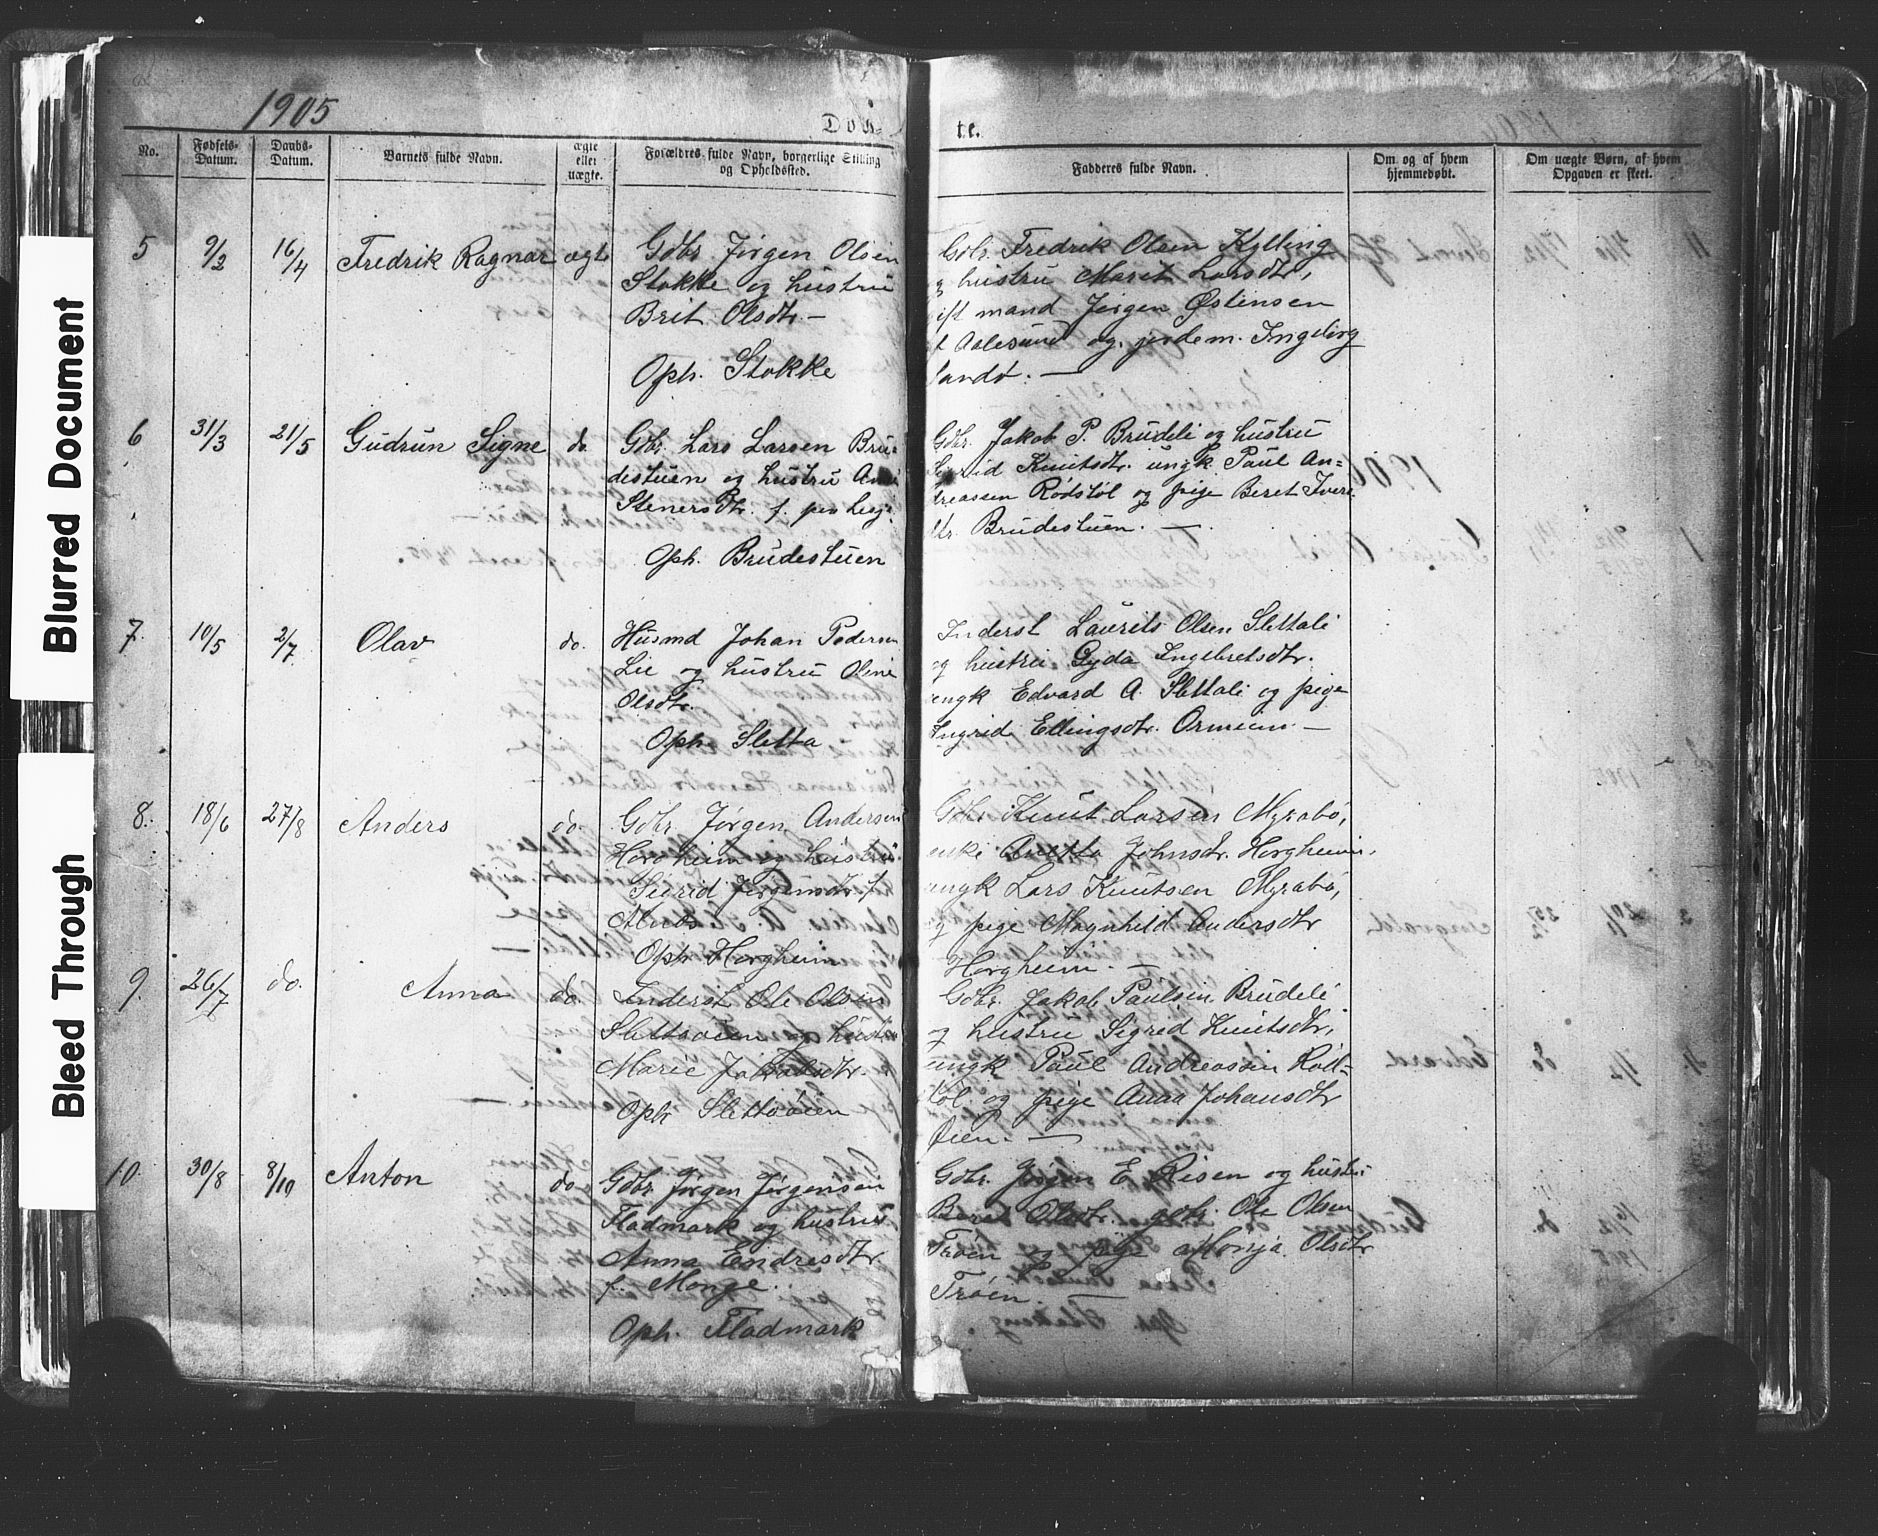 Blurred Document
Bleed Through
1905
Døb-
te.
No.
Fødsels-
Datum.
Daabs-
Datum.
Barnets fulde Navn.
ægte
eller
uægte.
Forældres fulde Navn, borgerlige Stilling
og Opholdssted.
Fadderes fulde Navn.
Om og af hvem
hjemmedøbt.
Om uægte Børn, af hvem
Opgaven er skeet.
5 9/2 16/4 Fredrik Ragnar ægte
Gdbr. Jørgen Olsen
Stokke og hustru
Brit Olsdtr. —
Oph. Stokke
Gdbr. Fredrik Olsen Kylling
og hustru Marit Larsdtr,
gift mand Jørgen Østensen
Aalesund og jordem. Ingeborg
Sandø. —
6 31/3 21/5 Gudrun Signe do.
Gbr. Lars Larsen Bru-
destuen og hustru Ane
Stenersdtr. f.
Oph. Brudestuen
Gdbr. Jakob P. Brudeli og hustru
Sigrid Knutsdtr. ungk. Paul An=
dreassen Rødstøl og pige Beret Ivers
dtr. Brudestuen. —
7. 10/5 2/7 Olav do.
Husmd Johan Pedersen
Lie og hustru Oline
Olsdtr.
Oph. Sletta
Inderst Laurits Olsen Slettali
og hustru Gyda Ingebretsdtr.
ungk Edvard A. Slettali og pige
Ingrid Ellingsdtr. Ormeim. —
8. 18/6 27/8 Anders do.
Gdbr. Jørgen Andersen
Horgheim og hustru
Sigrid Jørgensdtr. f.
Oph. Horgheim
Gdbr. Knut Larsen Myrabø,
enke Anetta Johnsdtr. Horgheim,
ungk Lars Knutsen Myrabø,
og pige Magnhild Andersdtr
Horgheim. —
9. 26/7 do. Anna do.
Inderst Ole Olsen
Slettøien og hustru
Marie Jakobsdtr.
Oph. Slettøien
Gdbr. Jakob Paulsen Brudeli
og hustru Sigrid Knutsdtr,
ungk Paul Andreassen Rød=
støl og pige Anna Johansdtr
Øien. —
10. 30/8 8/10 Anton do.
Gdbr. Jørgen Jørgensen
Fladmark og hustru
Anna Endresdtr.
f. Monge.
Oph. Fladmark
Gdbr. Jørgen E. Risen og hustru
Beret Olsdtr. gdbr. Ole Olsen
Trøen og pige Olsdtr
Trøen. —